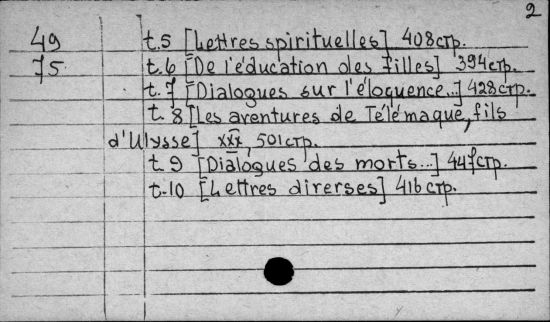 2
49 t.5 [Lettres spirituelles] 408стр.
75 t.6 [De l'éducation des filles] 394стр.
t.7 [Dialogues sur l'éloquence...] 428стр.
t.8 [Les aventures de Télémaque, fils
d'Ulysse] XXX, 501стр.
t.9 [Dialogues des morts...] 447стр.
t.10 [Lettres diverses] 416стр.